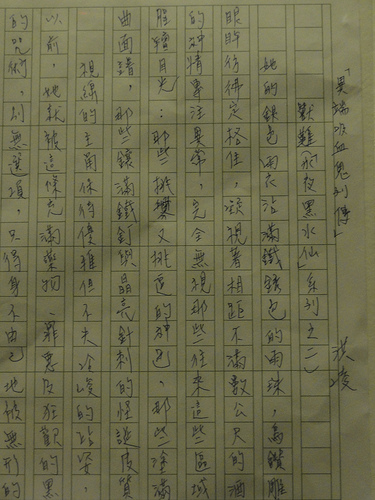 「異端吸血鬼列傳」
獸難形夜黑水仙」系列之二」 洪凌
她的銀色雨衣沾滿鐵銹色的雨珠，高鑽雕
眼眸彷彿定格住，凝視著相距不滿數公尺的酒
的神情專注異常，完全無視那些往來這些區域
腥羶目光；那些挑釁又挑逗的神色，那些塗滿
曲面譜，那些鑲滿鐵釘與晶亮針刺的怪誕皮質
視線的主角保持優雅但不失冷峻的站姿，
以前，她就被這條充滿藥物、罪惡及狂歡的黑
的咒術，別無選項，只得身不由己地被無形的